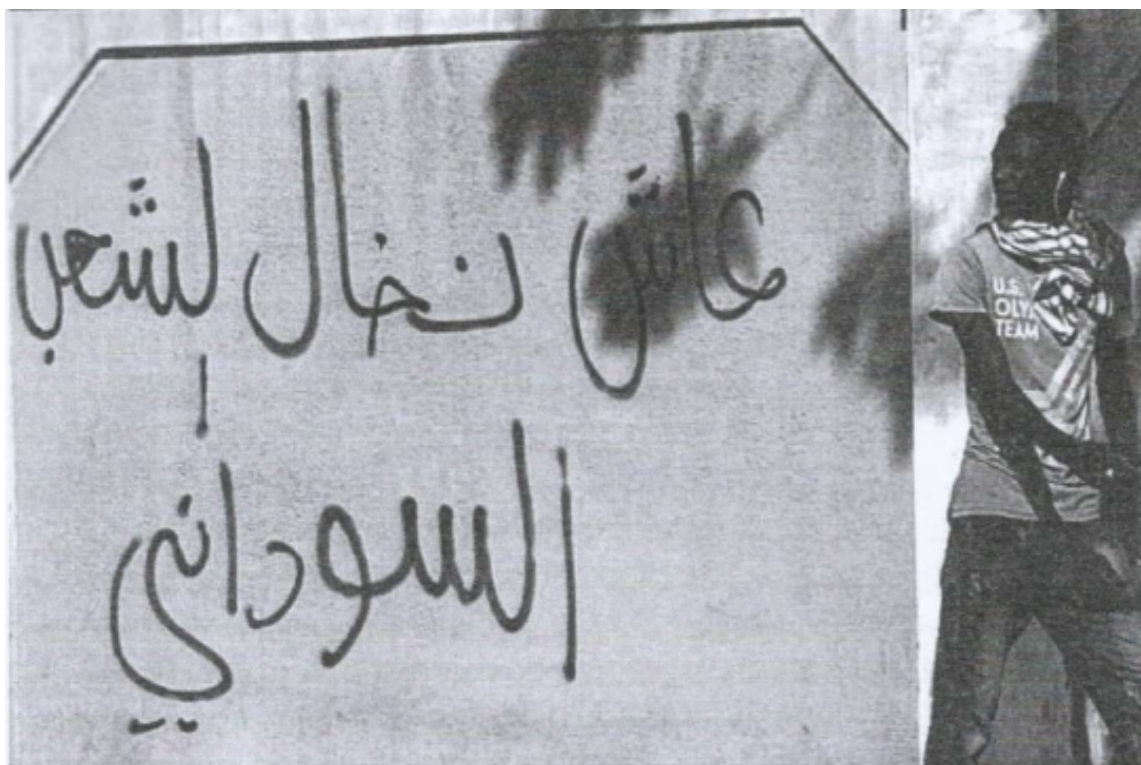 عاش نضال لشعب
ا
السوداني
U.S.
OLY
TEAM